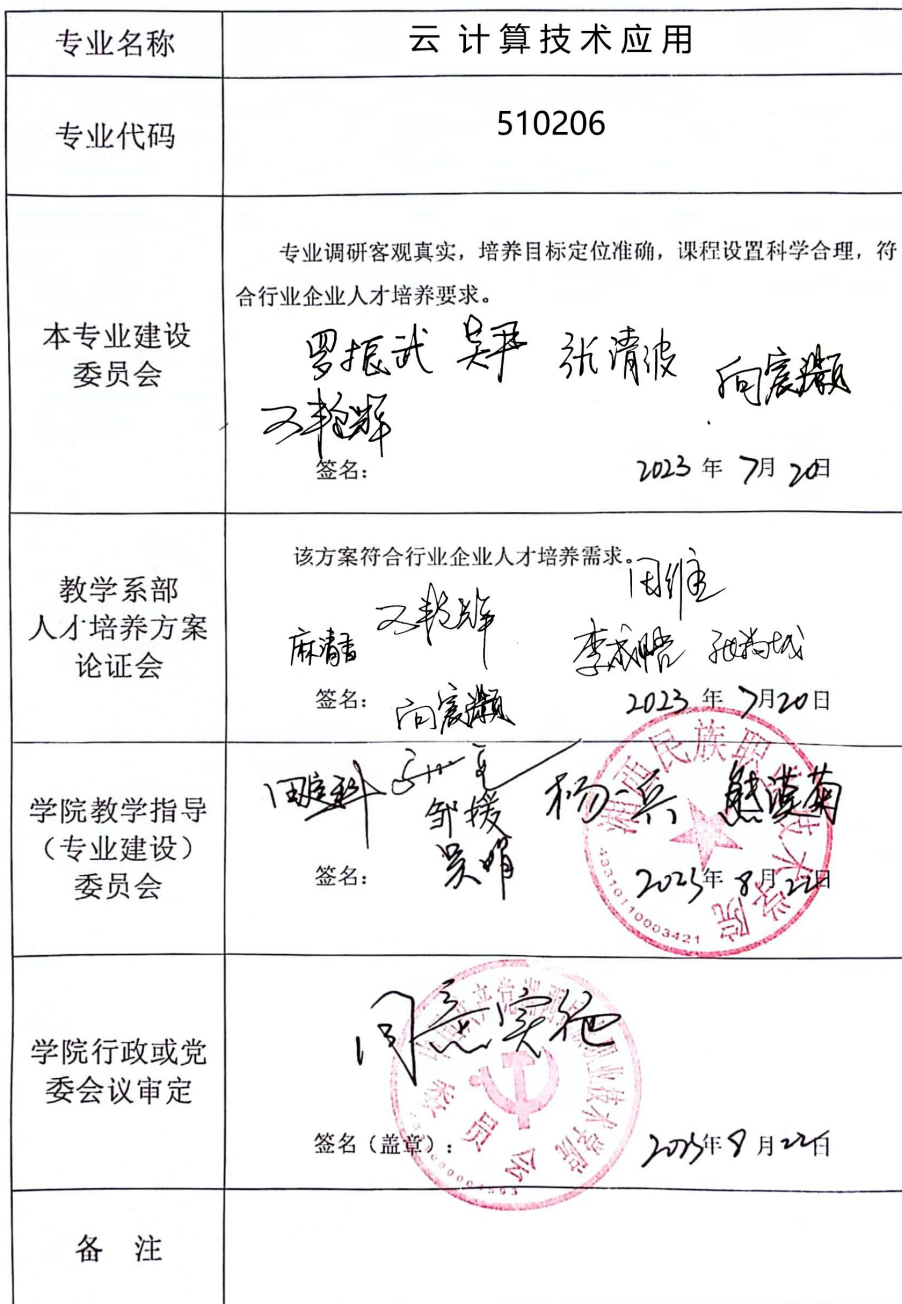 专业名称
云 计算技术应用
专业代码
510206
本专业建设
委员会
专业调研客观真实，培养目标定位准确，课程设置科学合理，符
合行业企业人才培养要求。
罗振武 吴平 张清波 向宸灏
签名：
2023 年 7月 20日
教学系部
人才培养方案
论证会
该方案符合行业企业人才培养需求。
麻清香 李成皓
签名： 向宸灏
2023 年 7月20日
学院教学指导
（专业建设）
委员会
邹媛 杨兵
签名： 吴娟
2023年 8月 22日
湘西民族职业技术学院
43310110003421
学院行政或党
委会议审定
同意实施
签名（盖章）：
2023年 8 月 22日
委员会
备 注